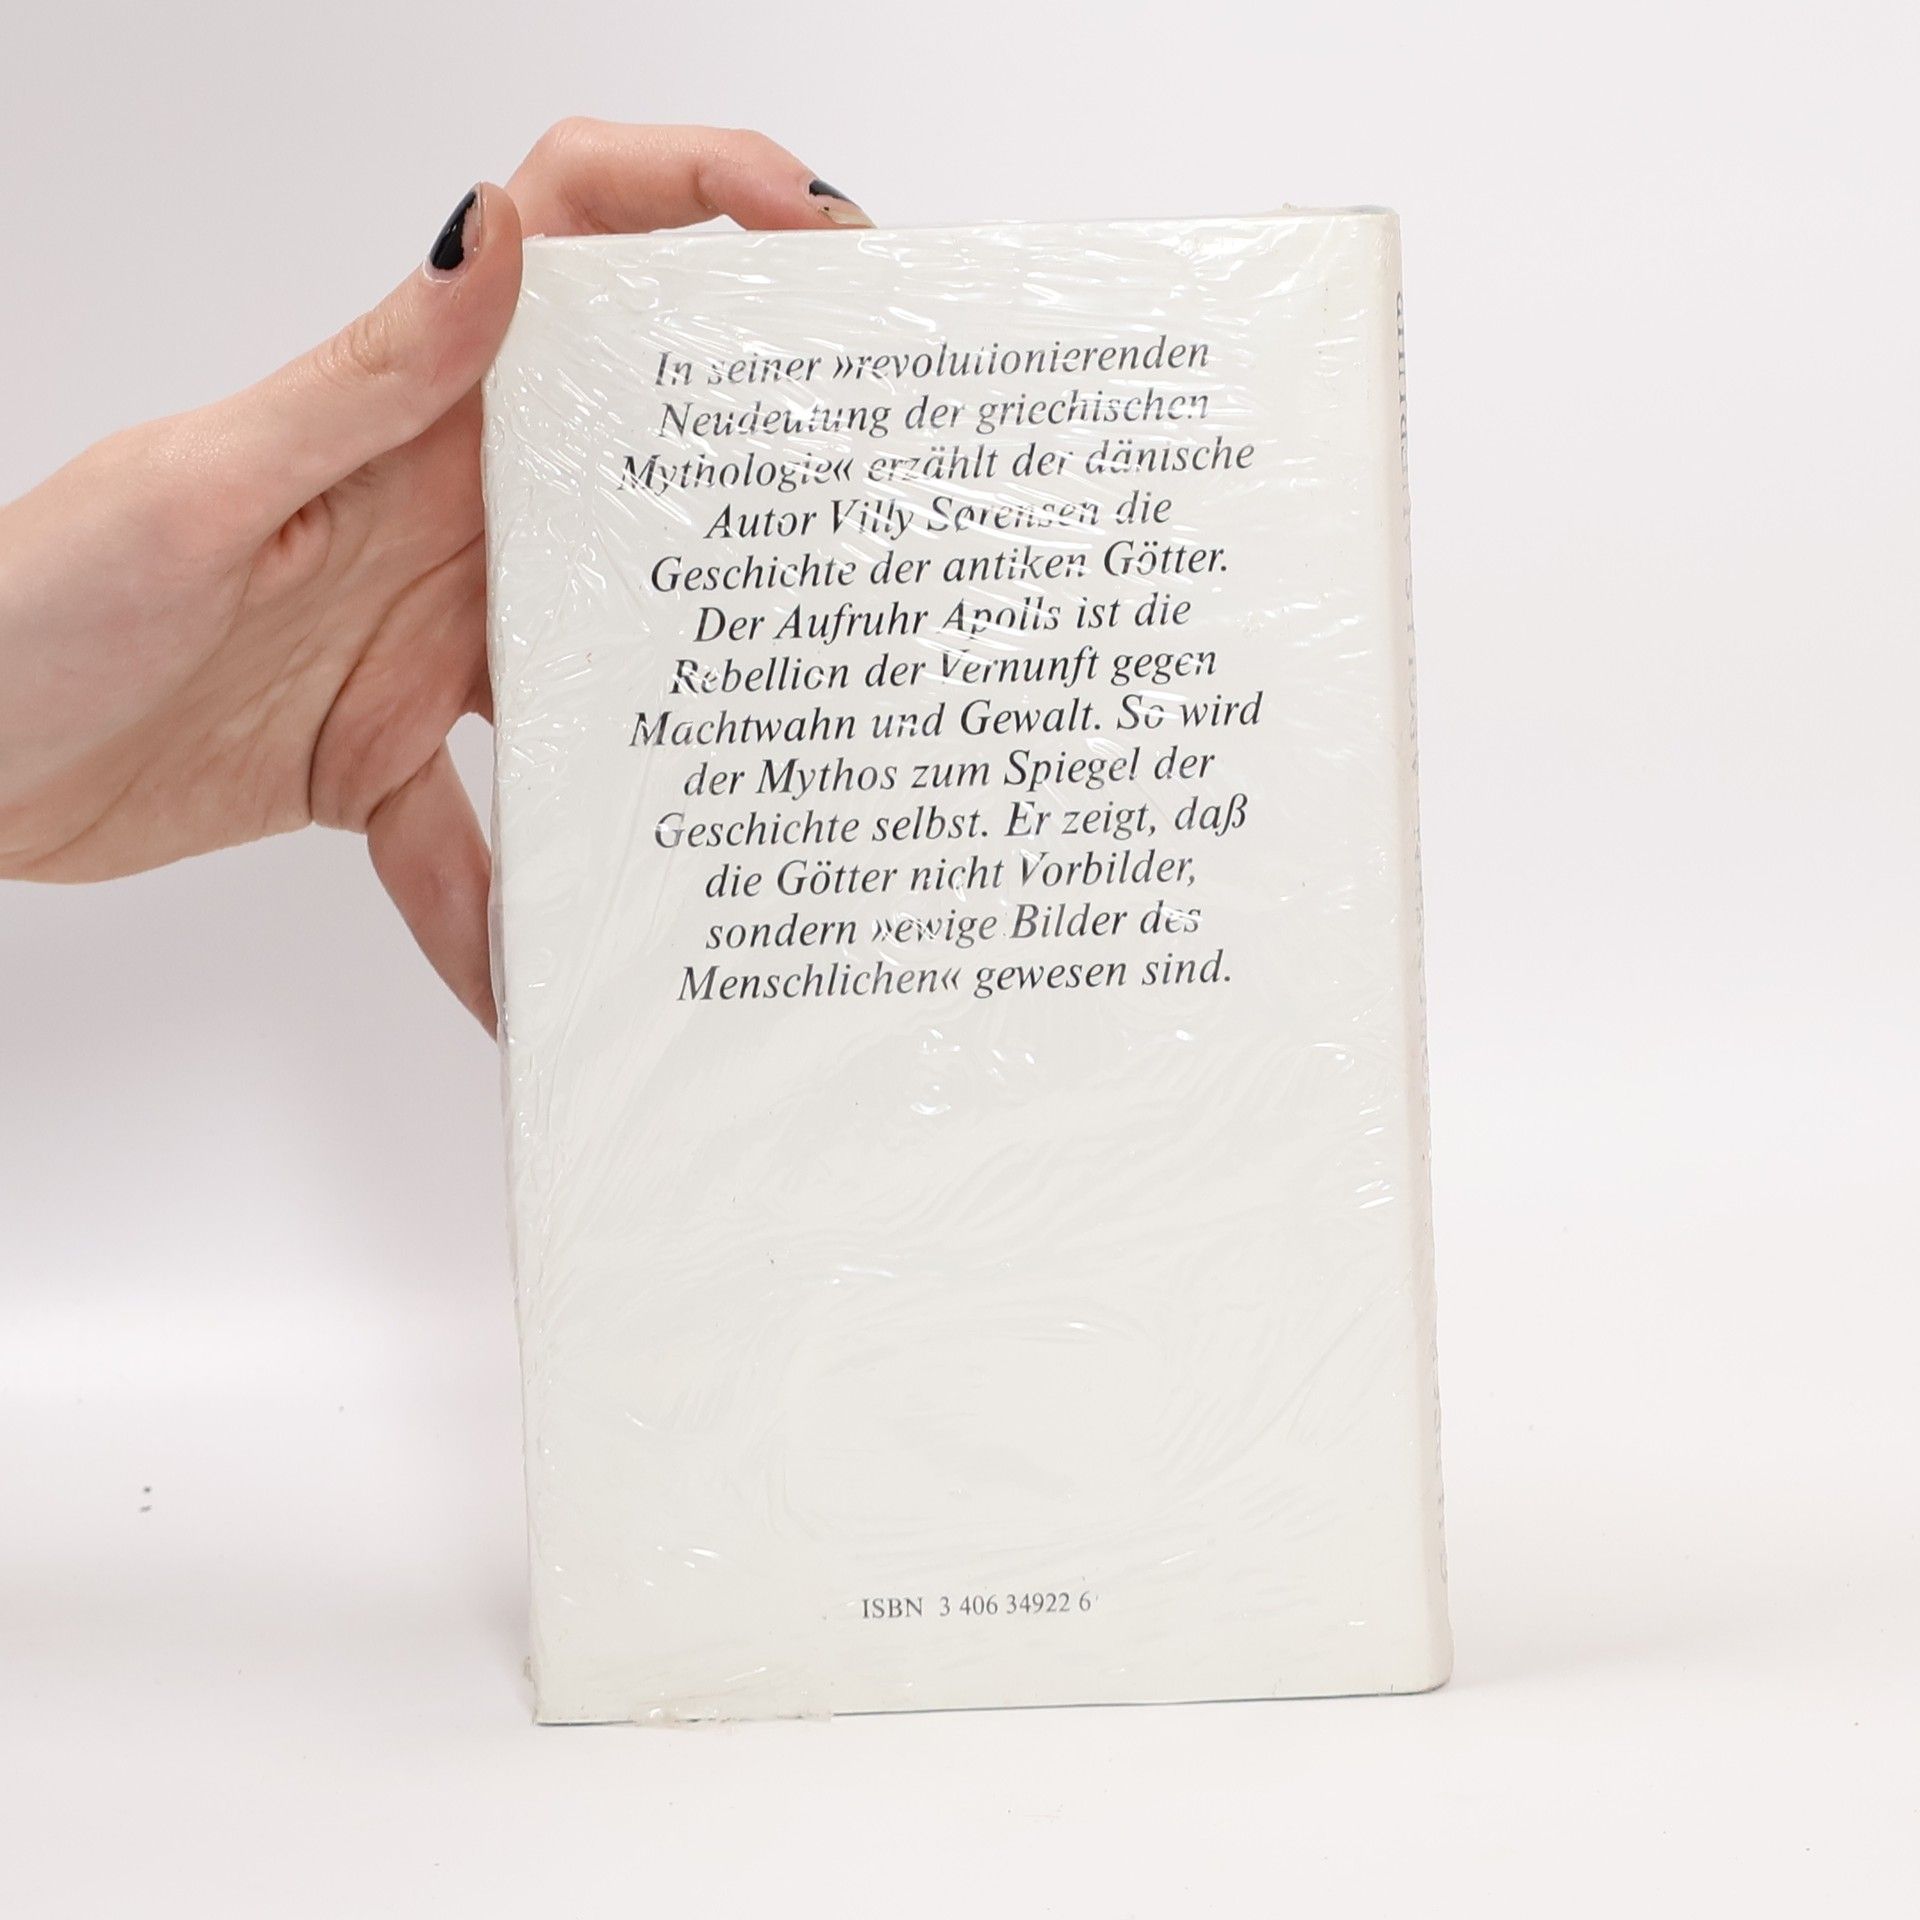 In seiner »revolutionierenden
Neudeutung der griechischen
Mythologie« erzählt der dänische
Autor Villy Sørensen die
Geschichte der antiken Götter.
Der Aufruhr Apolls ist die
Rebellion der Vernunft gegen
Machtwahn und Gewalt. So wird
der Mythos zum Spiegel der
Geschichte selbst. Er zeigt, daß
die Götter nicht Vorbilder,
sondern »ewige Bilder des
Menschlichen« gewesen sind.
ISBN 3 406 34922 6